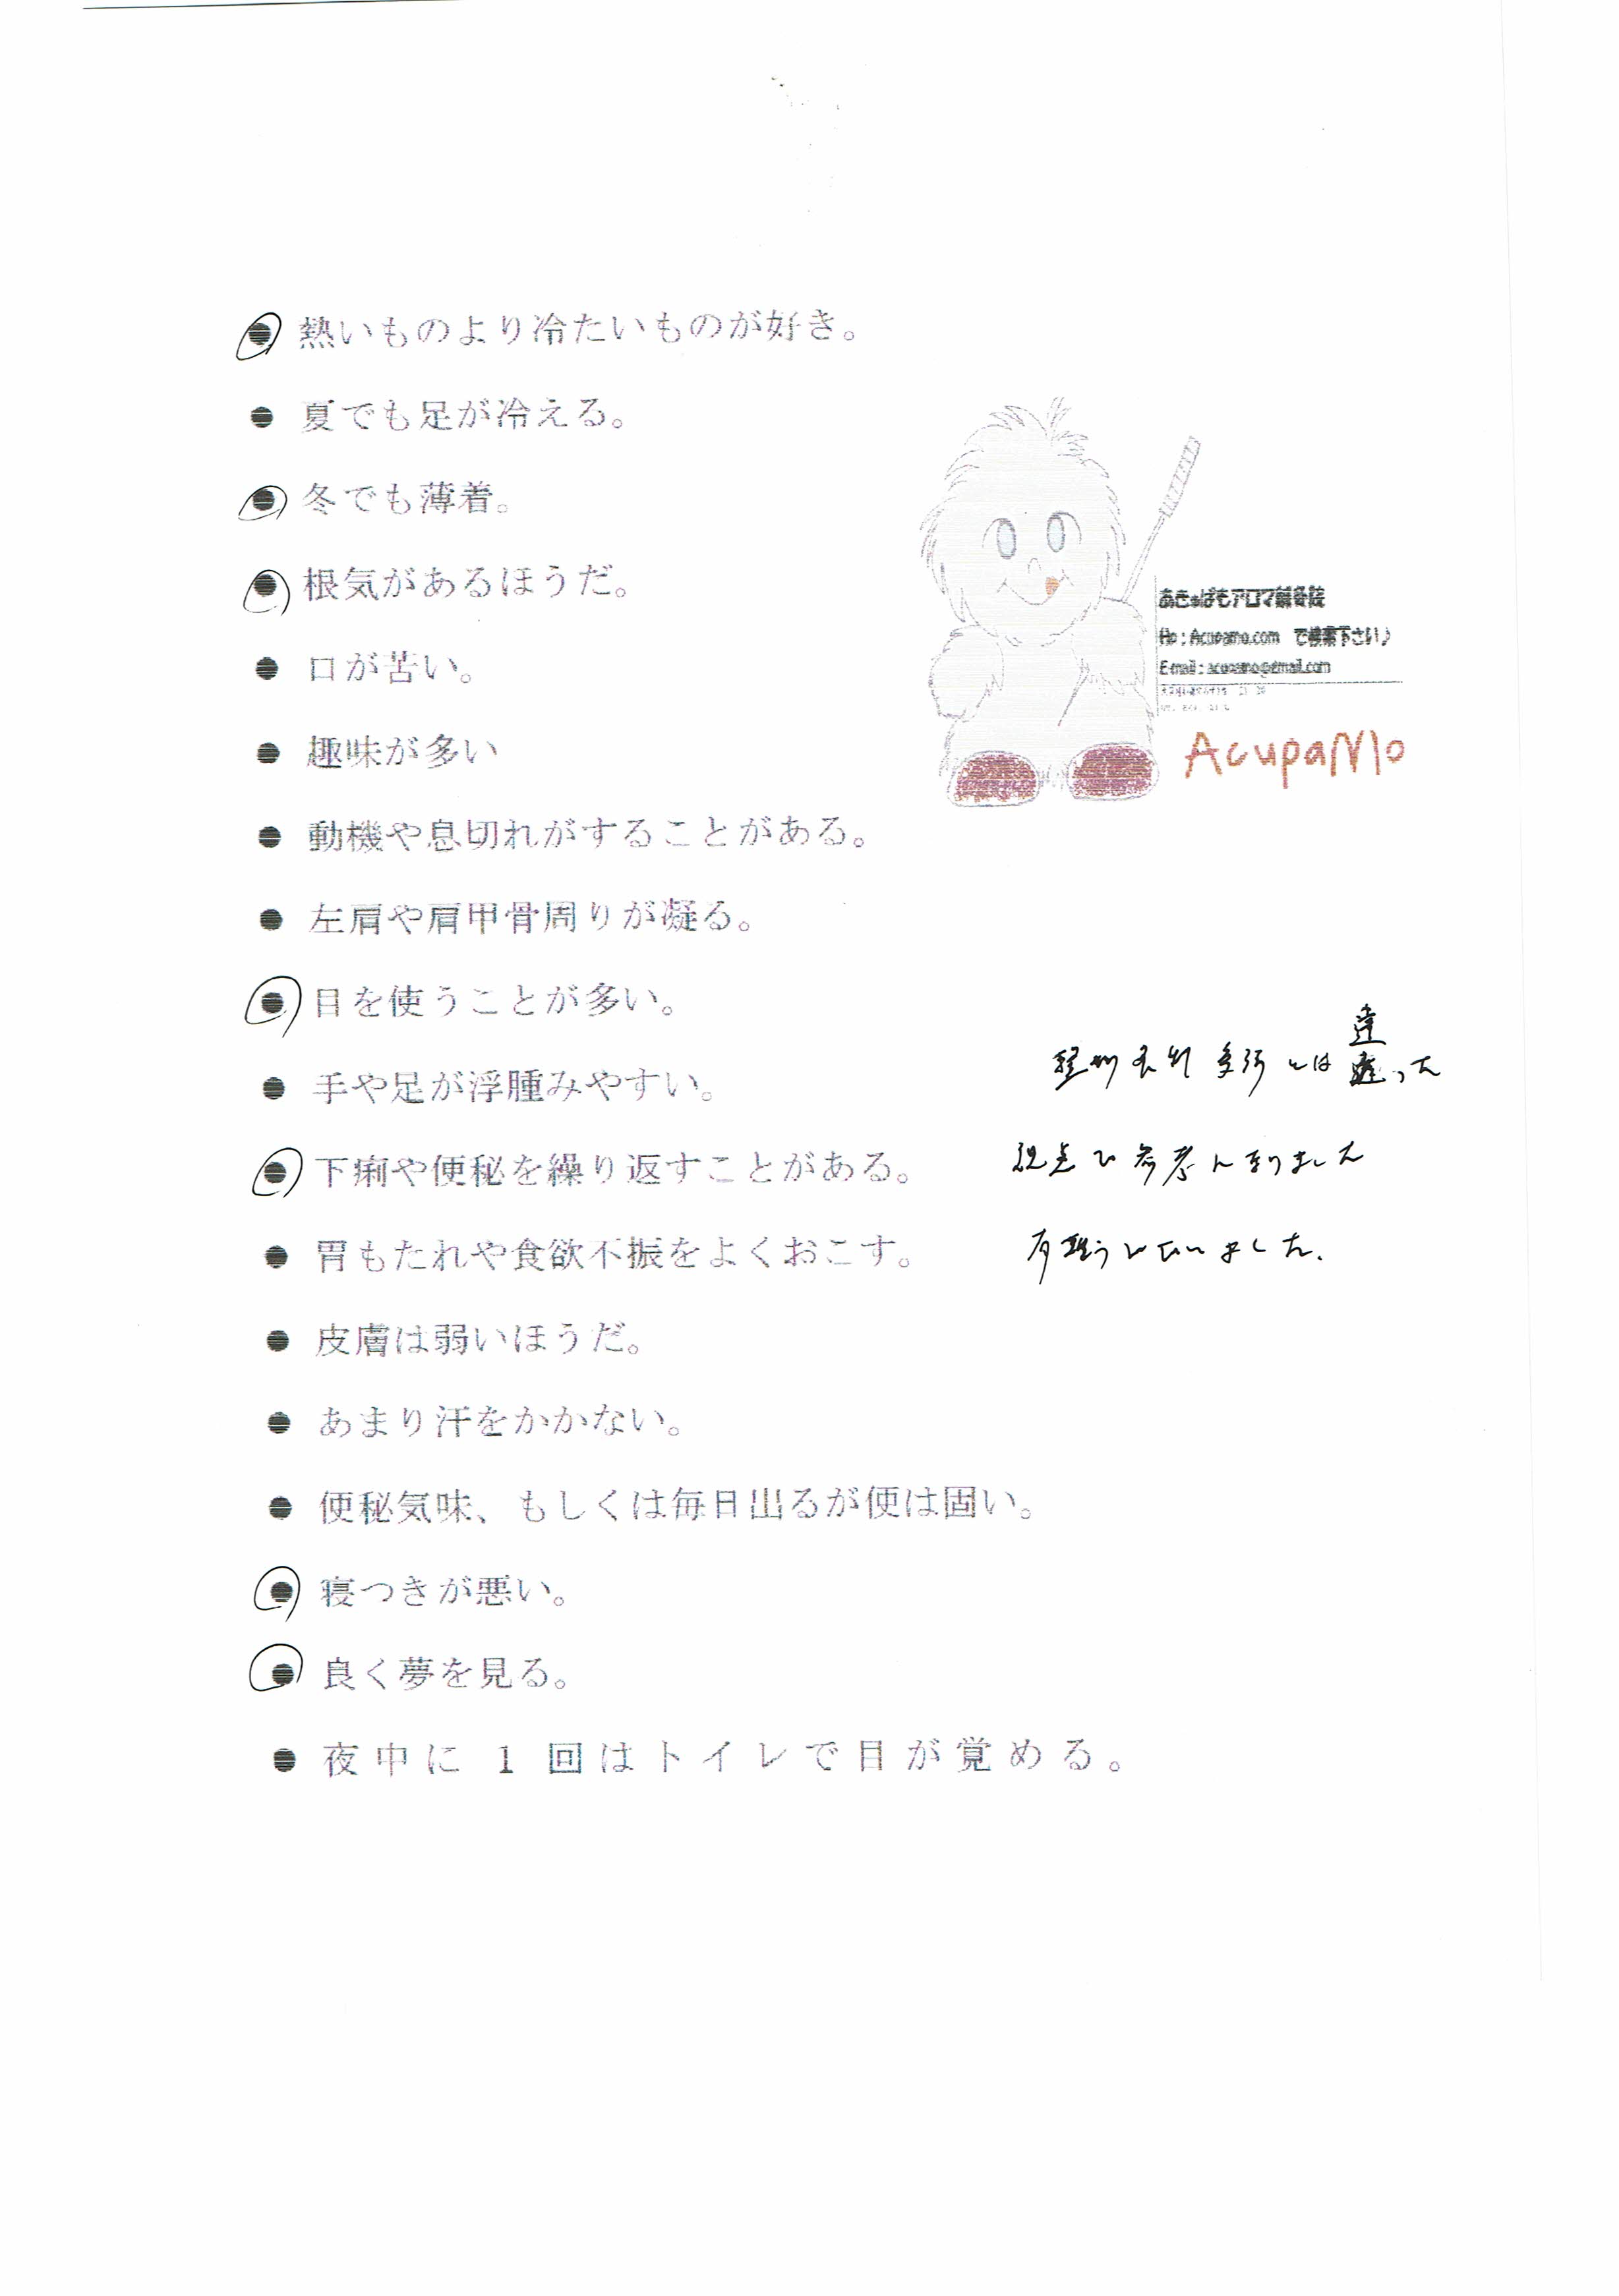 熱いものより冷たいものが好き。
夏でも足が冷える。
冬でも薄着。
根気があるほうだ。
口が苦い。
趣味が多い
動機や息切れがすることがある。
左肩や肩甲骨周りが凝る。
目を使うことが多い。
手や足が浮腫みやすい。
下痢や便秘を繰り返すことがある。
胃もたれや食欲不振をよくおこす。
皮膚は弱いほうだ。
あまり汗をかかない。
便秘気味、もしくは毎日出るが便は固い。
寝つきが悪い。
良く夢を見る。
夜中に1回はトイレで目が覚める。
あきゅぱもアロマ鍼灸院
Hp : Acupamo.com で検索下さい♪
E-mail : acupamo@gmail.com
AcupaMo
とは違った
視点で参考になりました
有難うございました.